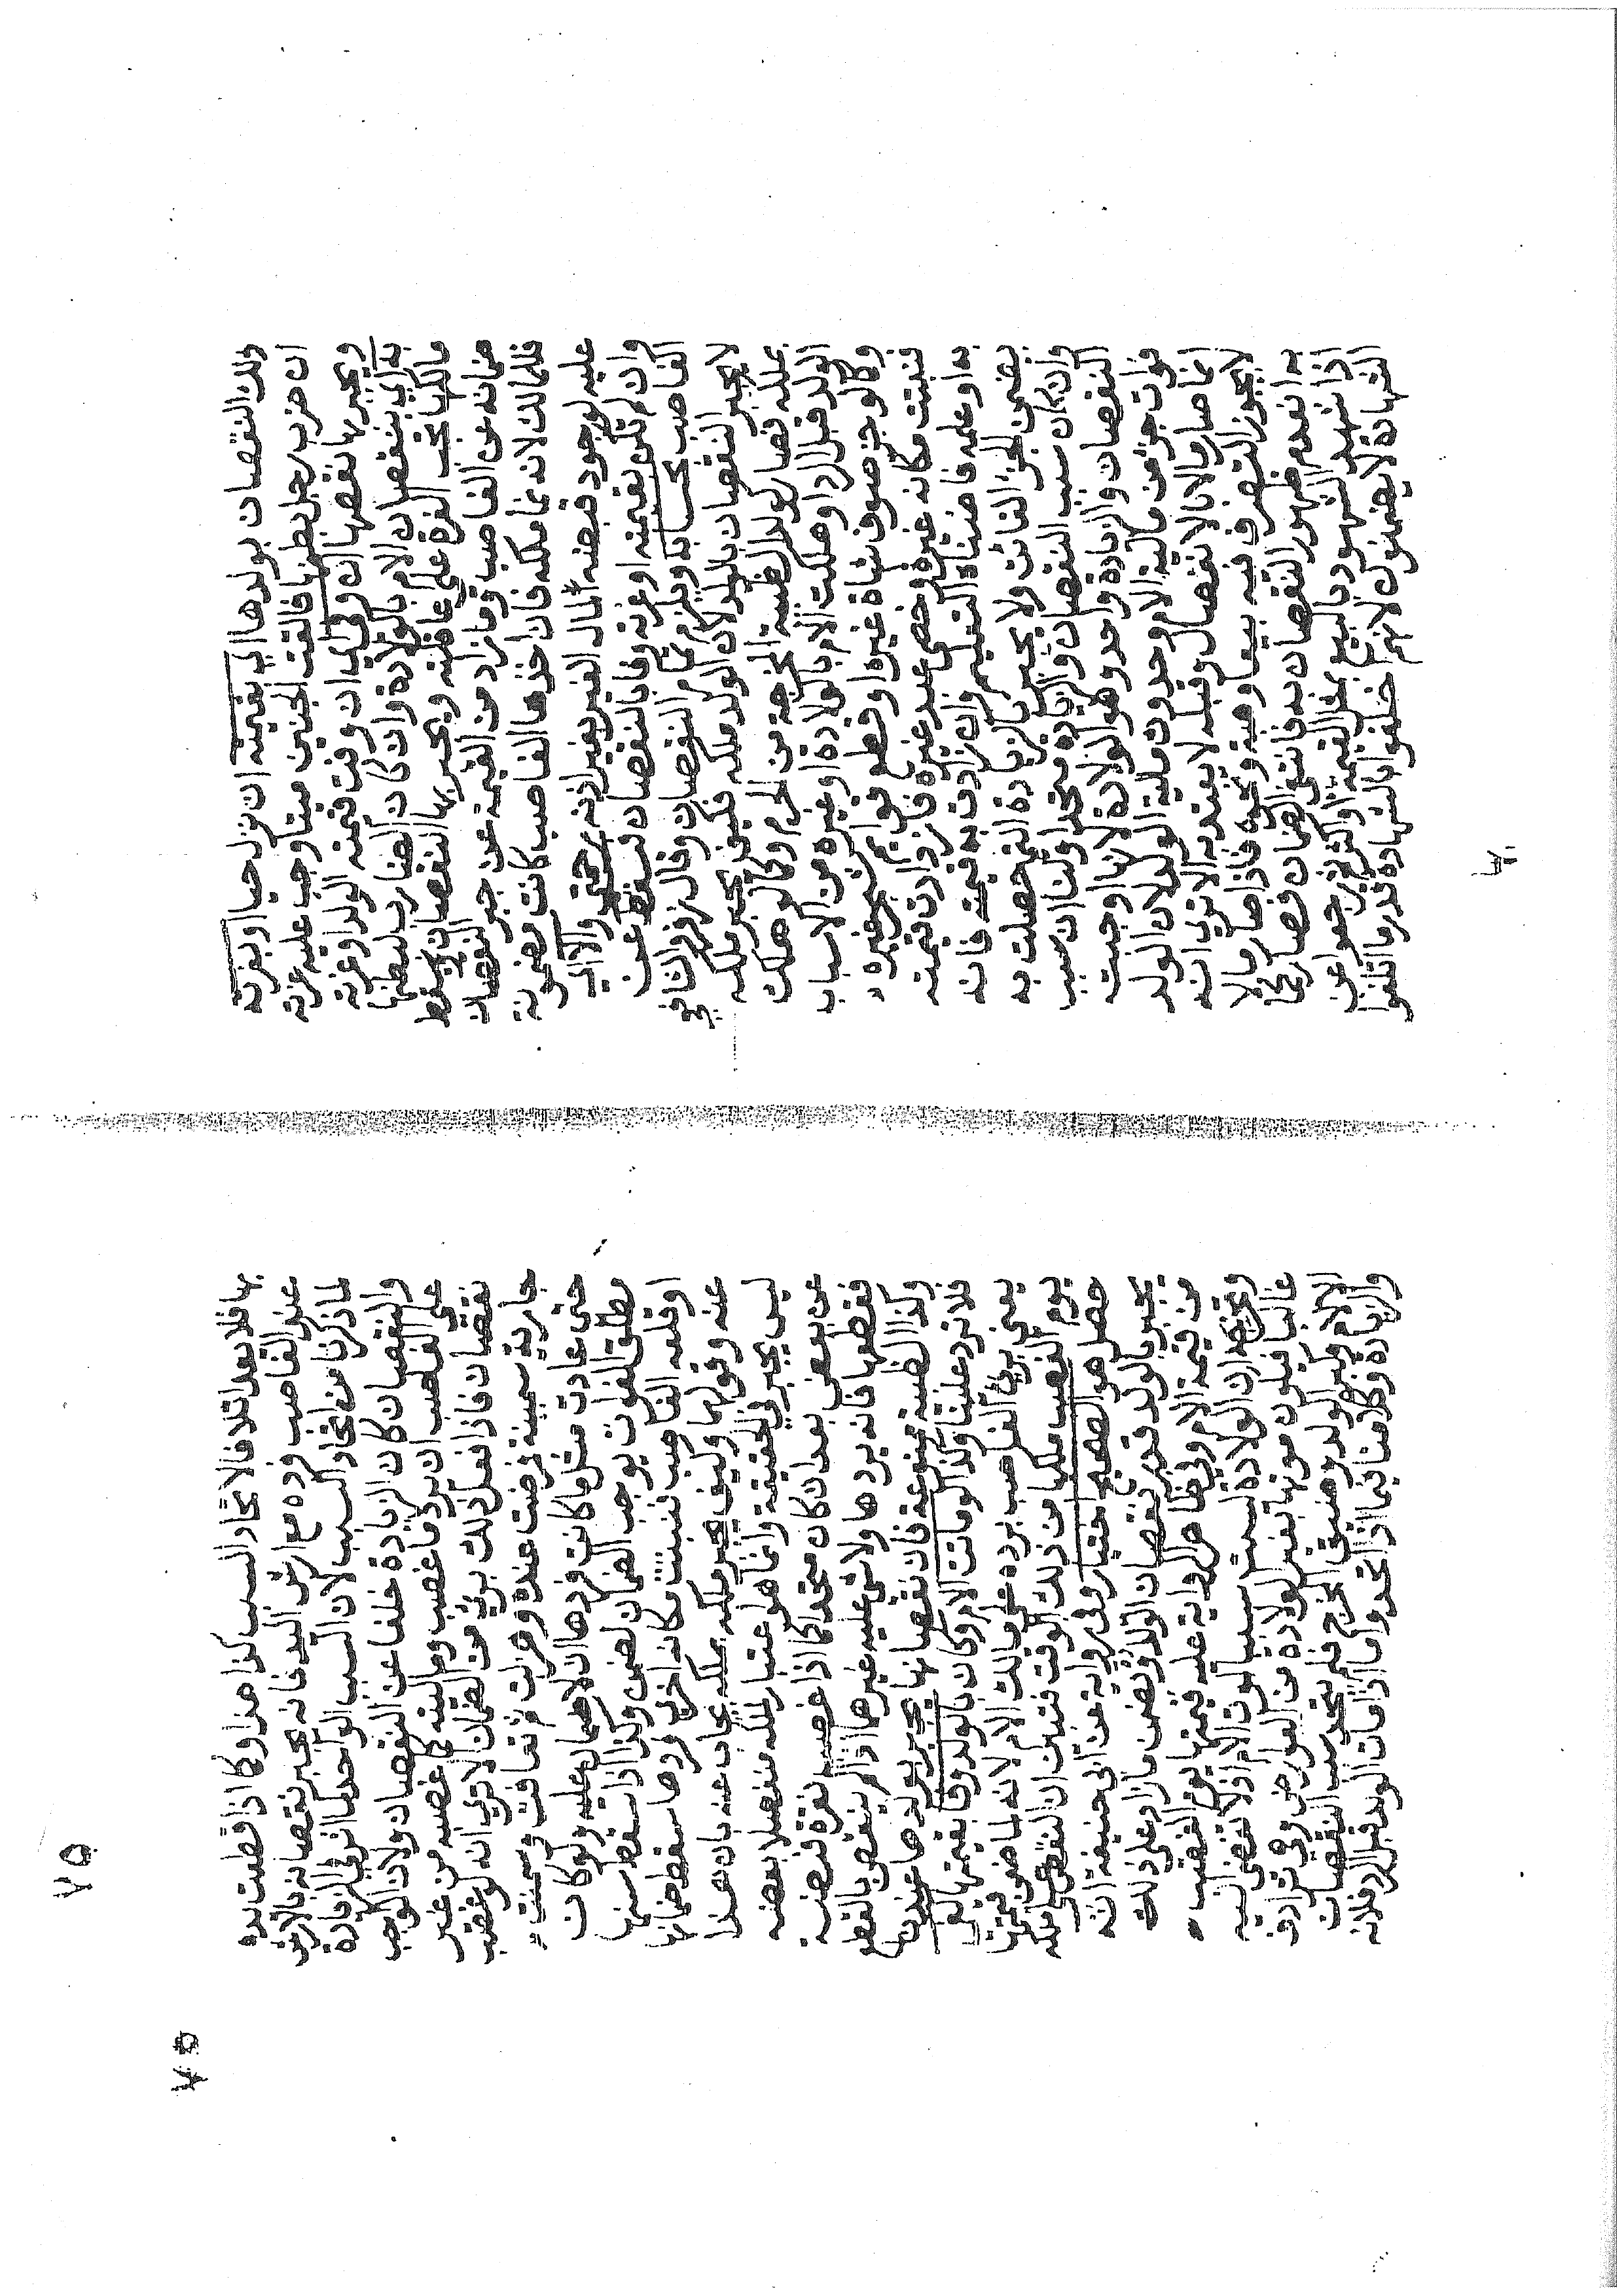 ذلك النقصان بولدها اي بقيمته ان نزل حيا او بغرته
ان ضرب رجل بطنها فالقت الجنين ميتا وجب عليه غرة
ويجبر بها نقصها ان وفى اي ان وفت قيمة الولد او غرته
به اي بنقصان الام بالولادة وان كان الضارب لبطنها
مالكها تجب الغرة على عاقلته ويجبر بها النقصان ويسقط
ضمانه عن الغاصب وما زاد من القيمة عن جبر النقصان
فللمالك لانه نما ملكه فان اخذها الغاصب كانت مضمونة
عليه لوجود قبضه المال الغير بغير اذنه والا اي
وان لم تكن بقيمته او غرته وفا بالنقصان فيسقط عن
الغاصب بحسابه ويلزم تمام النقصان وقال زفر والشافعي
لا يجبر النقصان بالولد لان الولد ملكه فكيف يجبر ملكه
بملكه فصار كولد الظبية المخرجة من الحرم وكما لو هلك
الولد قبل الرد او هلكت الام بالولادة او غيره من الاسباب
وكما لو جز صوف شاة غيره او قطع قوايم شجر غيره
فنبت مكانه غيره وخصى عبد غيره فازدادت قيمته
به او علمه فاضناه التعليم وان زادت به قيمته فانه
يضمن الجزء الفائت ولا يجبر بالزيادة التي حصلت به
وان كان سبب النقصان والزيادة متحدا ولنا ان سبب
النقصان والزيادة واحد وهو الولادة لانها اوجبت
فوات جزء من مالية الام وحدوث مالية الولد لان الولد
انما صار مالا بالانفصال وقبله لا يعتد به الا ترى انه
لا يجوز التصرف فيه بيعا وهبة ونحوه فاذا صار مالا
به انعدم ظهور النقصان به فانتفى الضمان فصار كما
اذا شهد الشهود بالبيع بمثل القيمة او اكثر ثم رجعوا عن
الشهادة لا يضمنون لانهم اخلفوا بالشهادة قدر ما اتلفوا
بها فلا يعد اتلافا لاتحاد السبب كذا هذا وكما اذا قطعت يده
عند الغاصب فرده مع ارش اليد فانه يجبر نقصانه بالارش
لما ذكرنا من اتحاد السبب لان السبب الواحد لما اثر في الزيادة
والنقصان كان الزيادة خلفا عن النقصان ولان الواجب
على الغاصب ان يرد ما غصب وماليته كما غصبه من غير
نقصان فاذا فعل ذلك برئ من الضمان الا ترى انه لو غصب
جارية سمينة فمرضت عنده وهزلت ثم تعافت وسمنت
حتى عادت مثل ما كانت فردها لا ضمان عليه ولو كان
مطلق الفوات يوجب الضمان لضمن وكذا اذا سقط سنها
او قلعه الغاصب فنبت مكانه اخرى فردها سقط ضمانها
عنه وقولهما وكيف يجبر ملكه بملكه يجاب عنه بان هذا
ليس بجبر في الحقيقة وانما هو اعتبار لملكه منفصلا بعضه
عن بعض بعد ان كان متحدا كما اذا غصب نقرة فضة
فقطعها فانه يردها ولا شي عليه غيرها اذا لم ينقص بالقطع
وكذا الظبية ممنوعة فان نقصانها يجبر بولدها عندنا
فلا ترد علينا وكذا لو ماتت الام وكان بالولد وفا بقيمتها
يعني برئ الغاصب برده على مالك الام لانه لما ضمن قيمتها
يوم الغصب ملكها من ذلك الوقت فتبين ان النقص على ملكه
حصل هو الصحيح اختيار وفي رواية عن ابي حنيفة انه
يجبر بالولد قدر نقصان الولادة ويضمن ما زاد على ذلك
من قيمة الام وفي ظاهر الرواية عليه قيمتها يوم الغصب
وتخريجه ان الولادة ليست سببا لموت الام اذ لا تفضي اليه
غالبا فيكون موتها بغير الولادة من العوارض وهي ترادف
الالام وكبر الولد وضيق المخرج فلم يتحد سبب النقصان
والزيادة وكلامنا فيما اذا اتحد واما اذا مات الولد قبل الرد فلانه
٧٥
٧٥